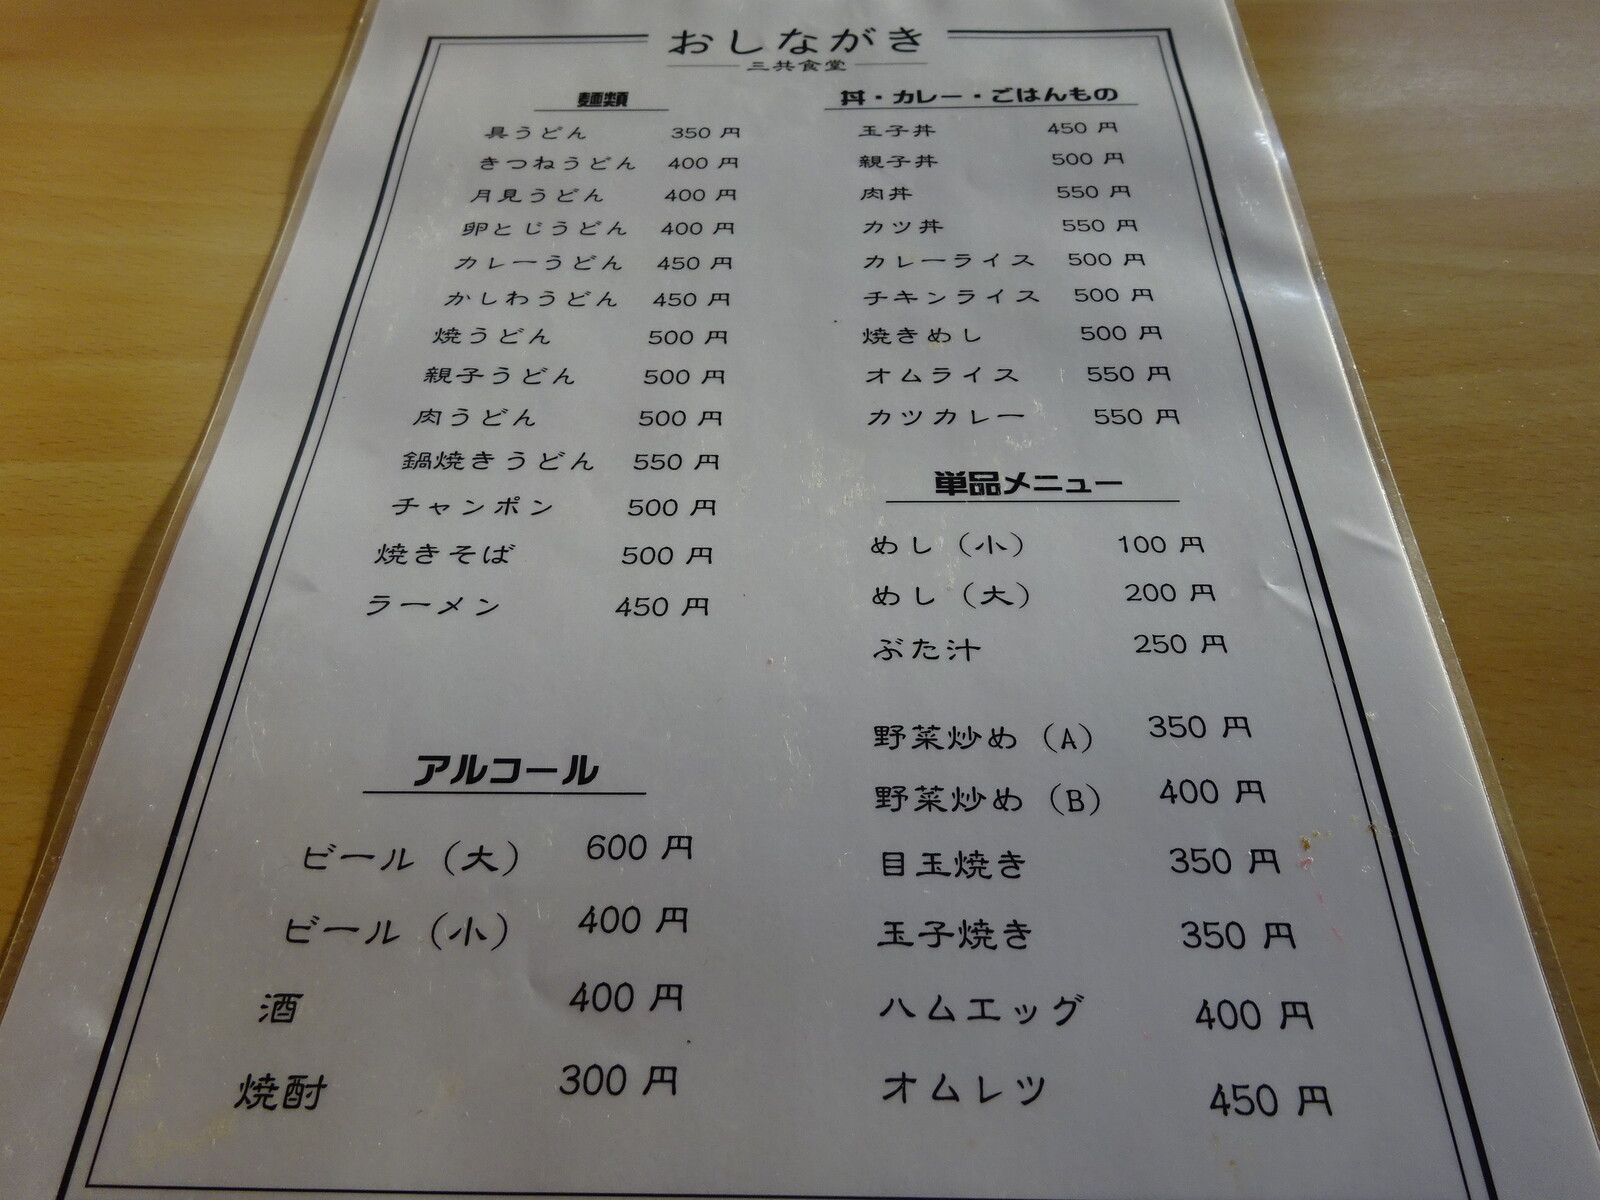 おしながき
三共食堂
麺類
具うどん 350 円
きつねうどん 400 円
月見うどん 400 円
卵とじうどん 400 円
カレーうどん 450 円
かしわうどん 450 円
焼うどん 500 円
親子うどん 500 円
肉うどん 500 円
鍋焼きうどん 550 円
チャンポン 500 円
焼きそば 500 円
ラーメン 450 円
アルコール
ビール（大） 600 円
ビール（小） 400 円
酒 400 円
焼酎 300 円
丼・カレー・ごはんもの
玉子丼 450 円
親子丼 500 円
肉丼 550 円
カツ丼 550 円
カレーライス 500 円
チキンライス 500 円
焼きめし 500 円
オムライス 550 円
カツカレー 550 円
単品メニュー
めし（小） 100 円
めし（大） 200 円
ぶた汁 250 円
野菜炒め（A） 350 円
野菜炒め（B） 400 円
目玉焼き 350 円
玉子焼き 350 円
ハムエッグ 400 円
オムレツ 450 円